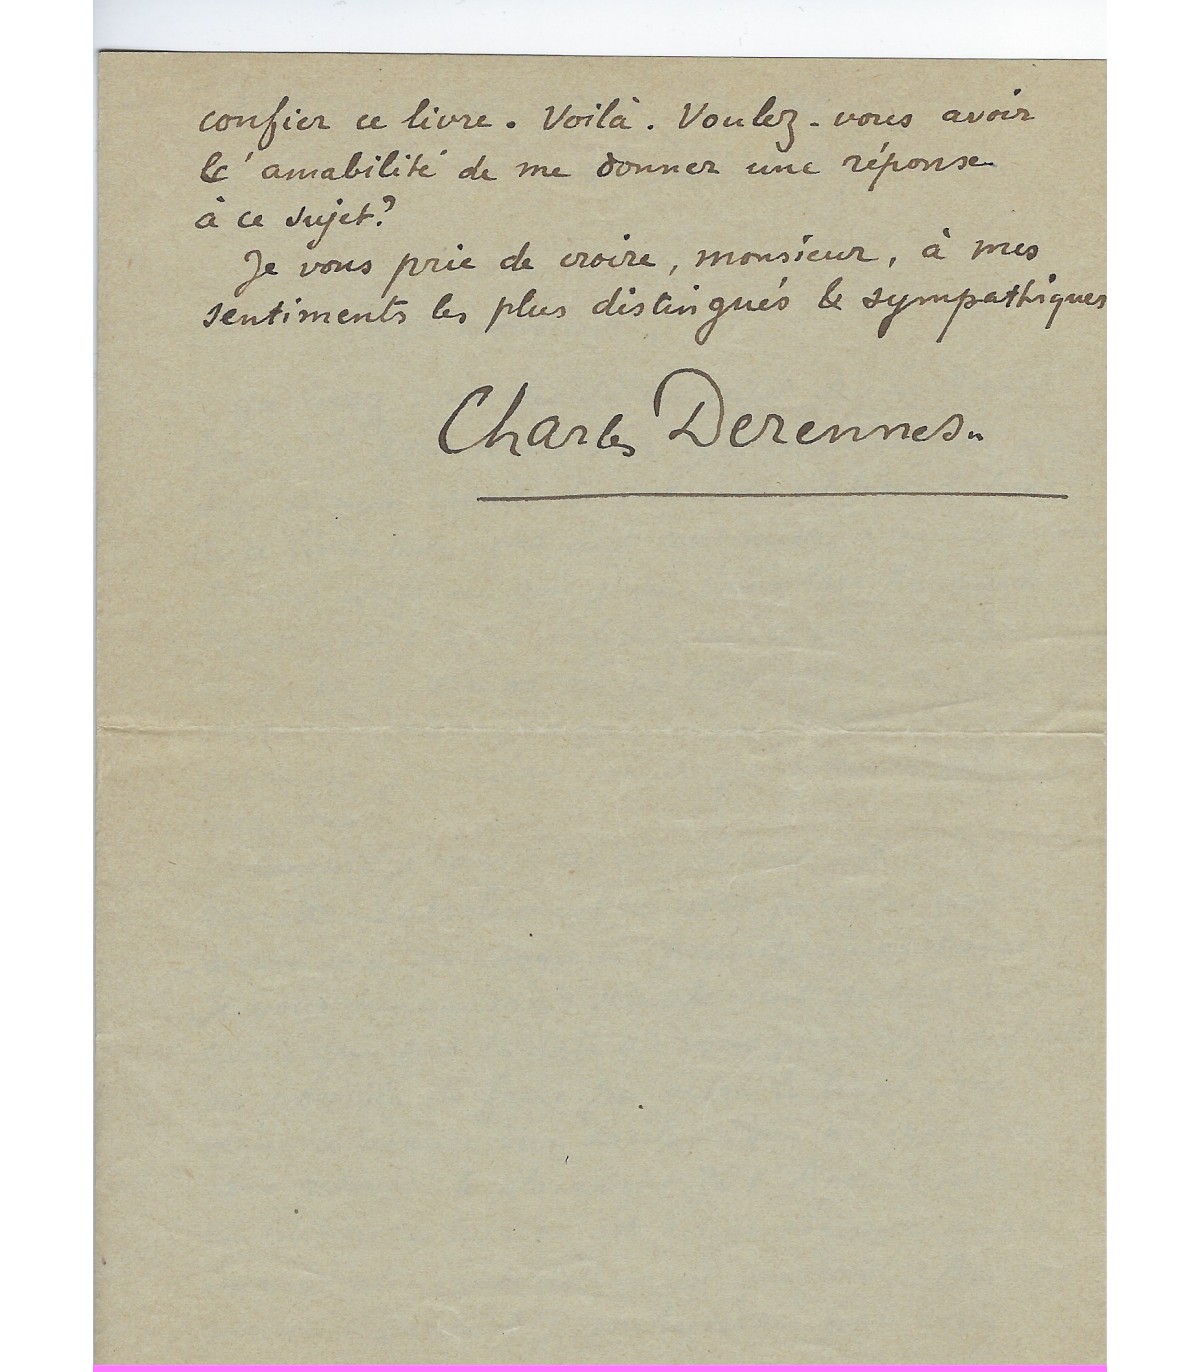 confier ce livre. Voilà. Voulez-vous avoir
l'amabilité de me donner une réponse
à ce sujet?
Je vous prie de croire, monsieur, à mes
sentiments les plus distingués & sympathiques
Charles Derennes